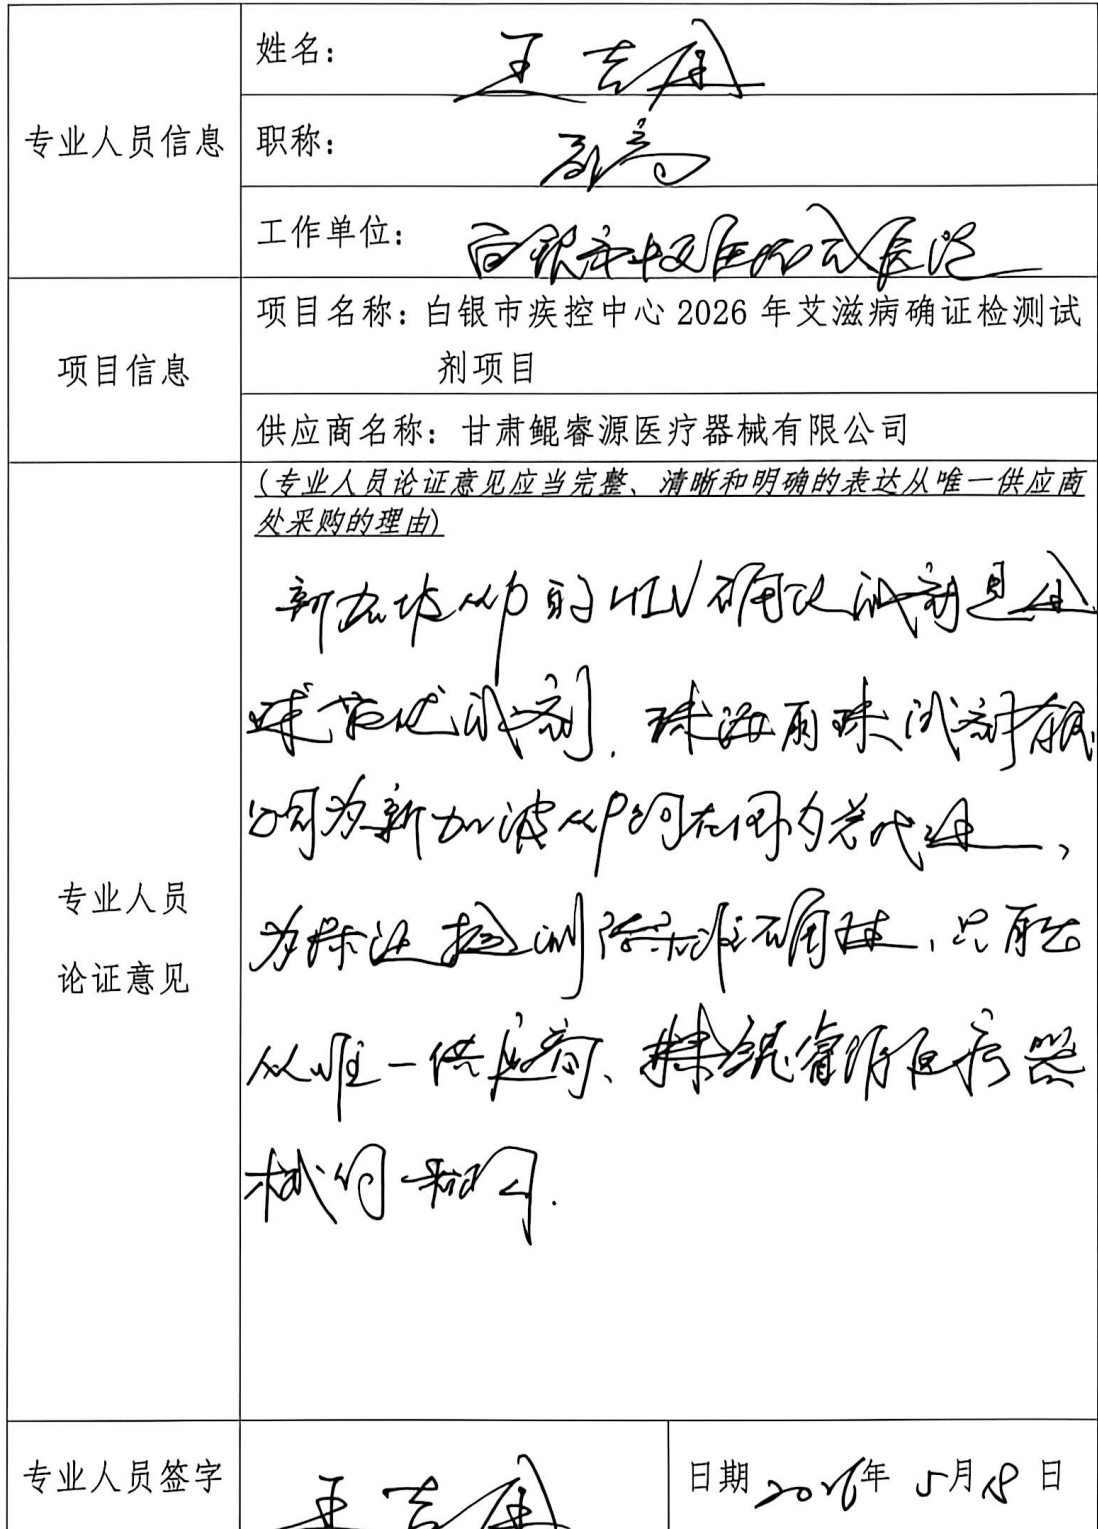 专业人员信息
姓名：王吉
职称：副高
工作单位：白银市中西医结合医院
项目信息
项目名称：白银市疾控中心 2026 年艾滋病确证检测试
剂项目
供应商名称：甘肃鲲睿源医疗器械有限公司
专业人员
论证意见
(专业人员论证意见应当完整、清晰和明确的表达从唯一供应商
处采购的理由)
新加坡MP的HIV确认试剂是全
球最优试剂，珠海丽珠试剂有限
公司为新加波MP公司在国内总代理，
为保证检测结果准确性，只能
从唯一供应商、鲲睿源医疗器
械公司采购.
专业人员签字
王吉
日期 2026年 5月18日